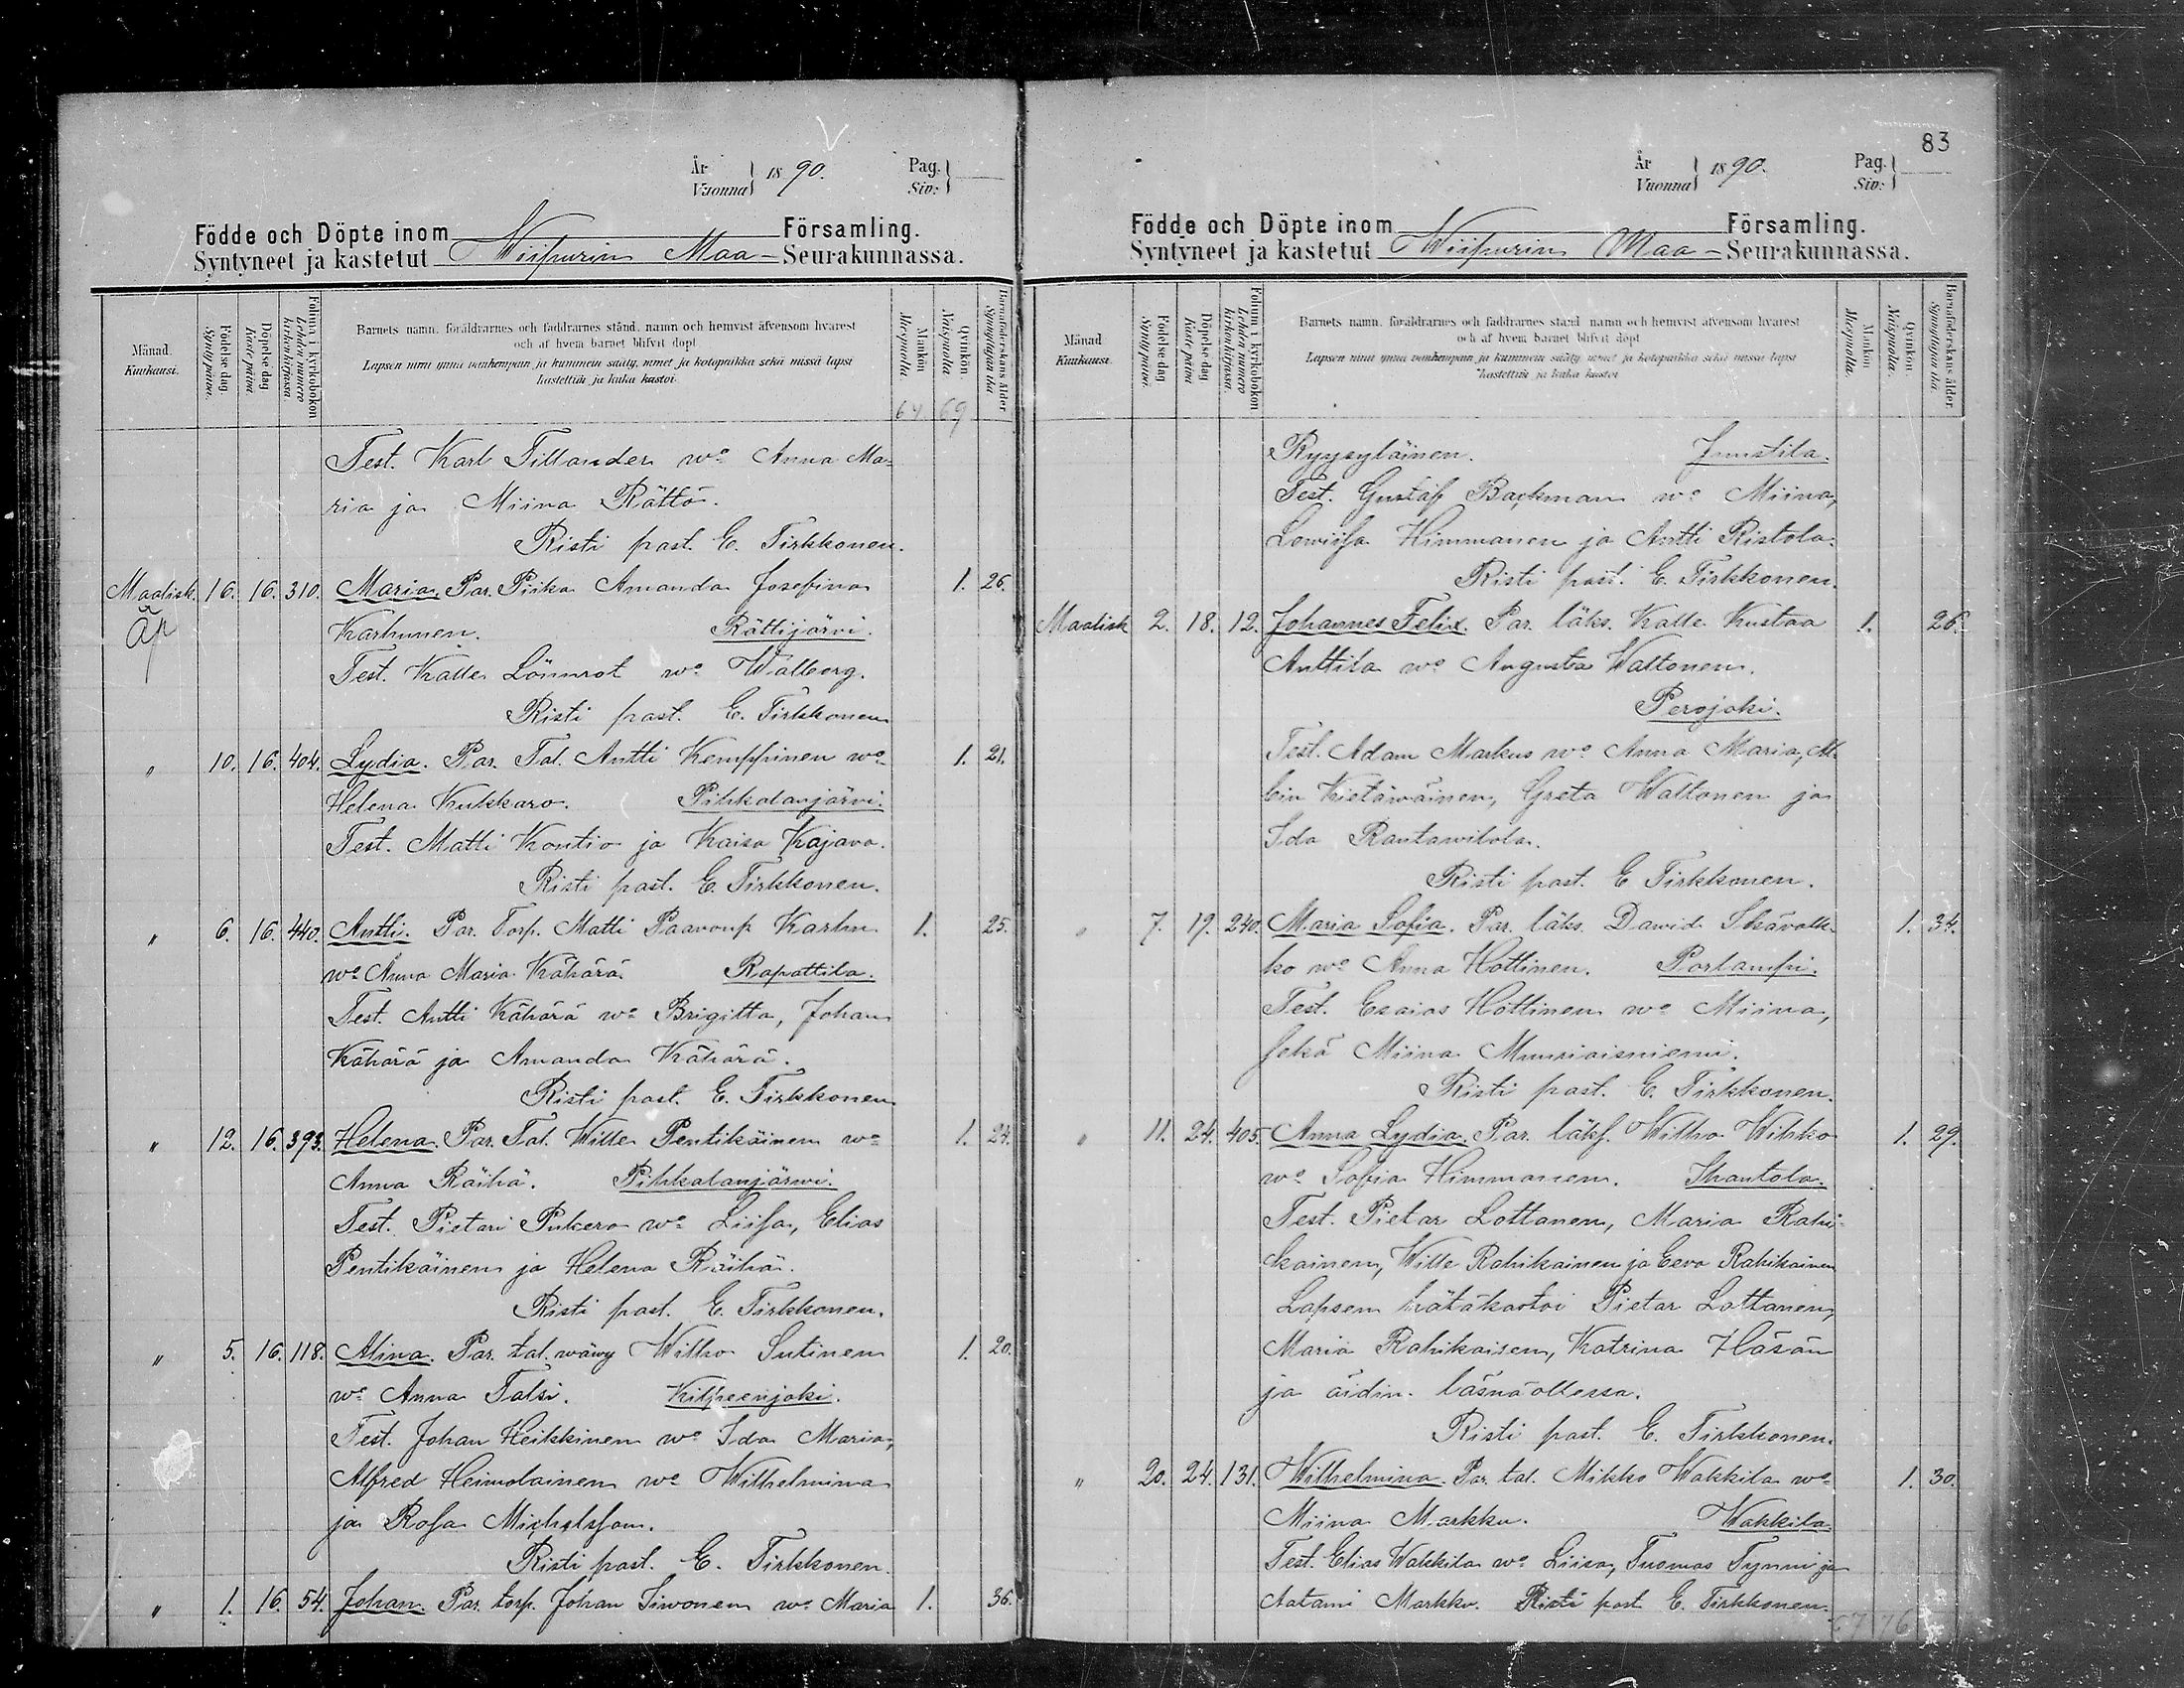 År
Vuonna } 1890. Pag.
Siv: }
Födde och Döpte inom Församling.
Syntyneet ja kastetut Wiipurin Maa- Seurakunnassa.
Månad. Kuukausi.
Födelse dag. Syntypäivä.
Döpelse dag Kaste päivä
Folium i kyrkobokon Lehden numero kirkonkirjassa
Barnets namn, föräldrarnes och faddrarnes stånd, namn och hemvist äfvensom hvarest
och af hvem barnet blifvit döpt
Lapsen nimi ynnä vanhempain ja kummein sääty, nimet ja kotopaikka sekä missä lapsi
kastettiin ja kuka kastoi.
Mankön Miespuolia.
Qvinkön. Naispuolia
Barnaföderskans ålder Synnyttäjän ikä
64. 69
Test. Karl Tillander wo Anna Ma-
ria ja Miina Rättö.
Risti past. E. Tirkkonen.
Maalisk. 16. 16. 310. Maria. Par. Piika Amanda Josefina 1. 26.
Äp Karhunen. Rättijärvi.
Test. Kalle Lönnrot wo Wålberg.
Risti past. E. Tirkkonen
" 10. 16. 404. Lydia. Par. Tal. Antti Kemppinen wo 1. 21.
Helena Kukkaro. Pihkalanjärvi.
Test. Matti Kontio ja Kaisa Kajava.
Risti past. E. Tirkkonen.
" 6. 16. 440. Antti. Par. Torp. Matti Paavonp Karhu 1. 25.
wo Anna Maria Kähärä. Rapattila.
Test. Antti Kähärä wo Brigitta, Johan
Kähärä ja Amanda Kähärä.
Risti past. E. Tirkkonen
" 12. 16. 393. Helena. Par. Tal. Wille Pentikäinen wo 1. 24.
Anna Räihä. Pihkalanjärwi.
Test. Pietari Pukero wo Liisa, Elias
Pentikäinen ja Helena Räihä.
Risti past. E. Tirkkonen.
" 5. 16. 118. Alina. Par. tal. wäwy Wilho Sutinen 1. 20.
wo Anna Talsi. Kilpeenjoki.
Test. Johan Heikkinen wo Ida Maria,
Alfred Heimolainen wo Wilhelmina
ja Rosa Michelsson.
Risti past. E. Tirkkonen.
" 1. 16. 54. Johan. Par. torp. Johan Siwonen wo Maria 1. 36.
83
År
Vuonna } 1890. Pag.
Siv: }
Födde och Döpte inom Församling.
Syntyneet ja kastetut Wiipurin Maa- Seurakunnassa.
Månad Kuukausi.
Födelse dag Syntypäivä.
Döpelse dag Kaste päivä
Folium i kyrkobokon Lehden numero kirkonkirjassa.
Barnets namn, föräldrarnes och faddrarnes stånd namn och hemvist äfvensom hvarest
och af hvem barnet blifvit döpt
Lapsen nimi ynnä vanhempain ja kummein sääty nimet ja kotopaikka sekä missä lapsi
kastettiin ja kuka kastoi
Mankön Miespuolia.
Qvinkön Naispuolia.
Barnaföderskans ålder. Synnyttäjän ikä.
Ryysyläinen. Juustila.
Test. Gustaf Backman wo Miina,
Lowiisa Himmanen ja Antti Ristola.
Risti past. E. Tirkkonen.
Maalisk 2. 18. 12. Johannes Felix. Par. läks. Kalle Kustaa 1. 26.
Anttila wo Augusta Waltonen.
Perojoki.
Test. Adam Markus wo Anna Maria, Al-
bin Kietäwäinen, Greta Waltonen ja
Ida Rantawilola.
Risti past. E Tirkkonen.
" 7. 19. 240. Maria Sofia. Par. läks. Dawid 1. 34.
ko wo Anna Hottinen. Porlampi.
Test. Esaias Hottinen wo Miina,
sekä Miina
Risti past. E. Tirkkonen.
" 11. 24. 405. Anna Lydia. Par. läks. Wilho Wihko 1. 29.
wo Sofia Himmanen. Ihantola.
Test. Pietar Lottanen, Maria Rahi-
kainen, Wille Rahikainen ja Eeva Rahikainen
Lapsen hätäkastoi Pietar Lattanen,
Maria Rahikaisen, Katrina Häsän
ja äidin läsnäollessa.
Risti past. E. Tirkkonen.
" 20. 24. 131. Wilhelmina. Par. tal. Mikko Wakkila wo 1. 30.
Miina Markku. Wakkila.
Test. Elias Wakkila wo Liisa, Tuomas Tynni ja
Aatami Markku. Risti past E. Tirkkonen.
67 76